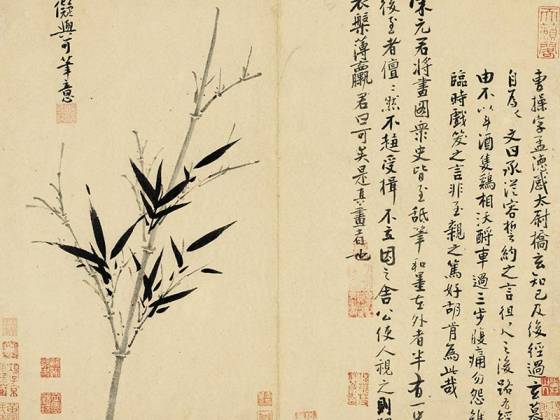 曹操字孟德感太尉橋玄知己及後經過玄墓
自為文曰承從容誓約之言徂之後路有經
由不以斗酒隻鷄相沃酹車過三步腹痛勿怨
臨時戲笑之言非至親之篤好胡肯為此哉
宋元君將畫圖衆史皆至舐筆和墨在外者半有
後至者儃〻然不趨受揖不立因之舍公使人視之則
衣槃薄臝君曰可矣是真畫者也
擬與可筆意